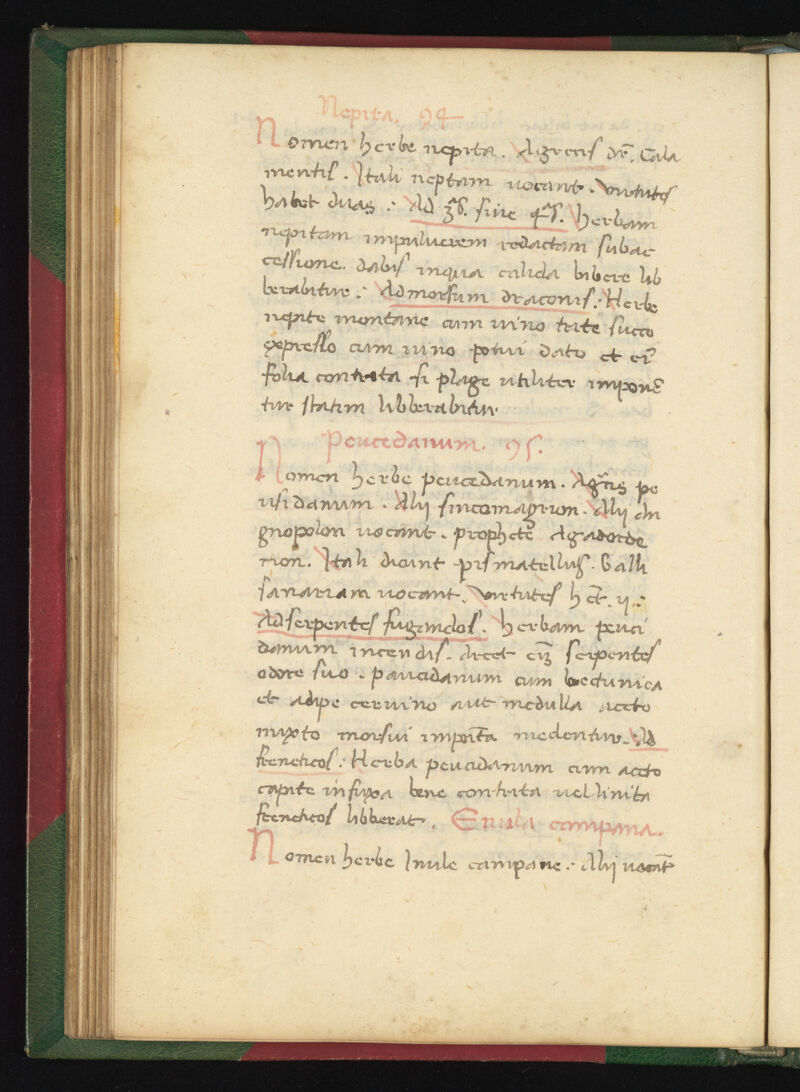 Nepita. 94
Nomen herbe nepita. A grecis dr̄. Cala
mentis. Itali neptam uocant. Virtutes
habet duas: Ad sive Herbam
nepitam impulverem redactam subac
cessione. dabis inqua calida bibere lib
berabitur: Ad morsum draconis: Herbe
nepite montane cum uino trite succo
expresso cum uino potui dato et
folia contrita si plage utiliter imponē
tur statim libberabitur
Peucedanum. 95.
Nomen herbe peucedanum. Agr̄cis pe
usidanum. Alij sincomagrion. Alij an
gnopolon uocant. prophete Agadorde
mon. Itali dicunt pismatellus. Galli
sanariam uocant. Virtutes hēt. ij:
Ad serpentes fugandos. Herbam peuci
danum incendis. Arcet serpentes
odore suo. paucidanum cum bectunica
et adipe ceruino aut medulla aceto
mixto morsui impoīta medentur. Ad
freneticos: Herba peucidanum cum aceto
capite infuxa bene contrita uel linita
freneticos libberat. Enula campana.
Nomen herbe Inule campane: Alij uocāt